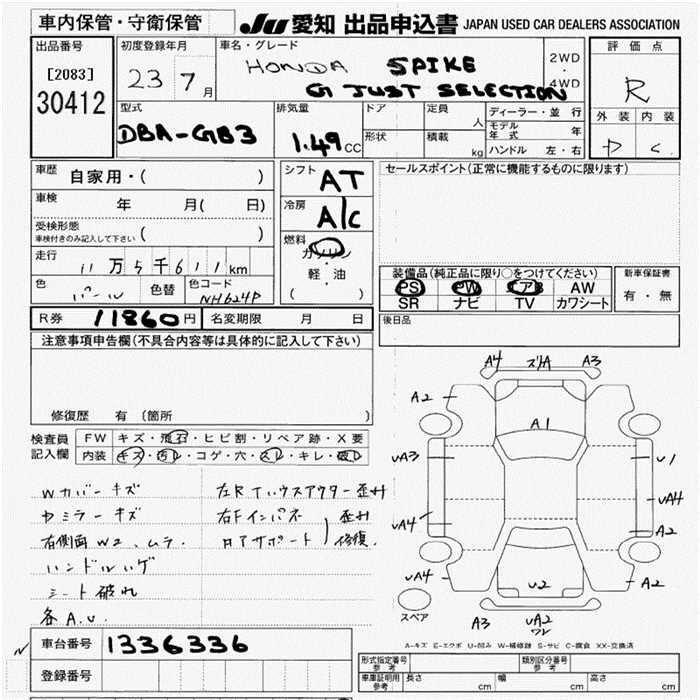 車内保管・守衛保管
JU 愛知 出品申込書 JAPAN USED CAR DEALERS ASSOCIATION
出品番号
[2083]
30412
初度登録年月
23 7月
車名・グレード
HONDA SPIKE
G JUST SELECTION
2WD
・
4WD
評価点
R
外装 内装
型式
DBA-GB3
排気量
1.49cc
ドア
形状
定員 人
積載 kg
ディーラー・並行
モデル年式 年
ハンドル 左・右
車歴
自家用・( )
車検 年 月( 日)
受検形態
車検付きのみ記入して下さい ( )
走行
11万5千611km
色
パール
色替
色コード
NH624P
シフト
AT
冷房
A/C
燃料
ガソリン
・
軽・油
( )
セールスポイント(正常に機能するものに限ります)
装備品(純正品に限り○をつけてください)
PS PW エアB AW
SR ナビ TV カワシート
新車保証書
有・無
R券 11860円
名変期限 月 日
後日品
注意事項申告欄(不具合内容等は具体的に記入して下さい)
修復歴 有 (箇所 )
検査員記入欄
FW キズ・飛石・ヒビ割・リペア跡・X要
内装 キズ・汚レ・コゲ・穴・スレ・キレ・破レ
Wカバーキズ
ドミラーキズ
右側面W2、ムラ.
ハンドルハゲ
シート破れ
各A.U.
左RTハウスアウター歪み
右Fインパネ 歪み
ロアサポート 修復.
A4 ズリA A3
A2
A1
UA3
U1
UA4
UA4
A2
UA4
U2
A2
スペア
A3 UA2
ワレ
A-キズ E-エクボ U-凹み W-補修跡 S-サビ C-腐食 XX-交換済
車台番号 1336336
登録番号
形式指定番号
参考
類別区分番号
参考
車庫証明用
参考
長さ cm
幅 cm
高さ cm